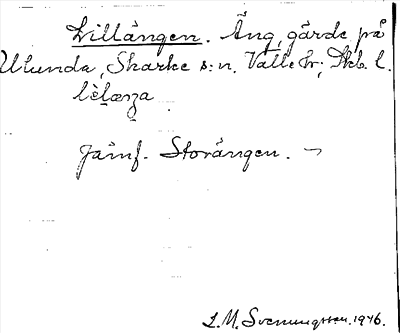 Lillängen. Äng, gärde på
Ulunda, Skarke s:n, Valle hr, Skb. l.
Jämf. Storängen. ¬
L. M. Svenungsson. 1946.